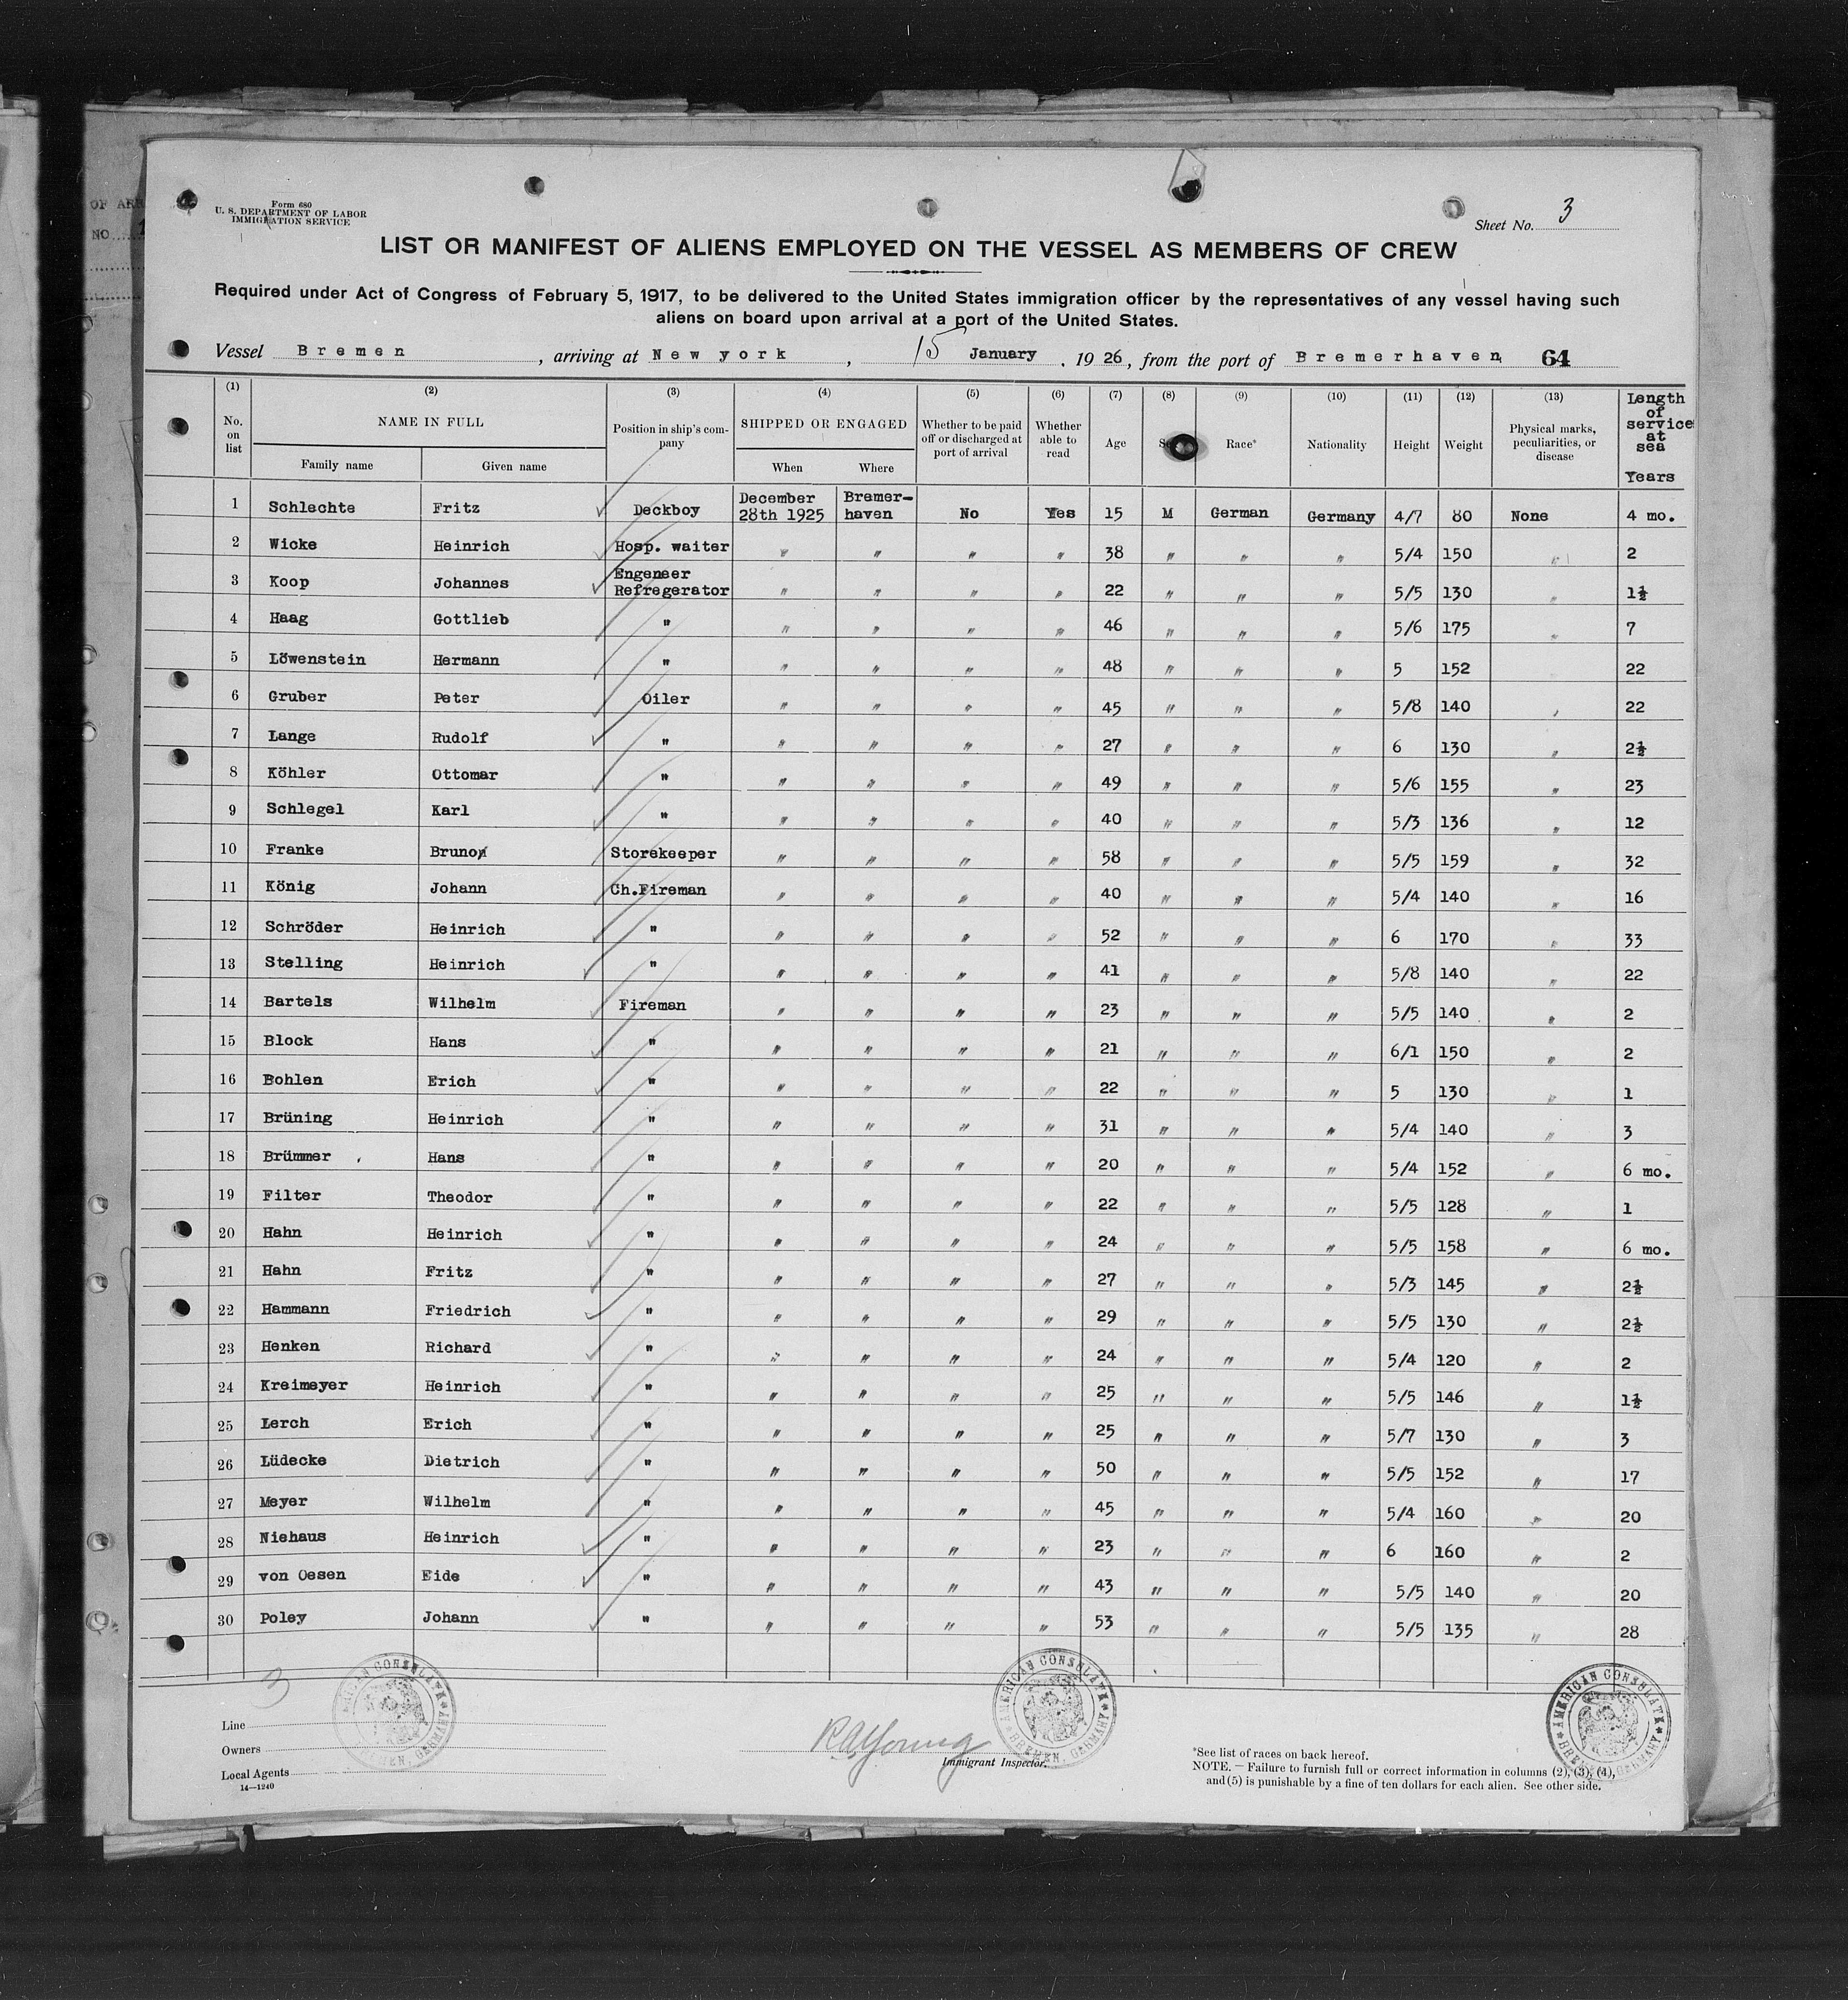 OF ARR
NO
Form 680
U. S. DEPARTMENT OF LABOR
IMMIGRATION SERVICE
Sheet No. 3
LIST OR MANIFEST OF ALIENS EMPLOYED ON THE VESSEL AS MEMBERS OF CREW
Required under Act of Congress of February 5, 1917, to be delivered to the United States immigration officer by the representatives of any vessel having such
aliens on board upon arrival at a port of the United States.
Vessel Bremen, arriving at New york, 15 January, 1926, from the port of Bremerhaven 64
(1) (2) (3) (4) (5) (6) (7) (8) (9) (10) (11) (12) (13)
No. on list NAME IN FULL Family name Given name Position in ship's company SHIPPED OR ENGAGED When Where Whether to be paid off or discharged at port of arrival Whether able to read Age Sex Race* Nationality Height Weight Physical marks, peculiarities, or disease Length of service at sea Years
1 Schlechte Fritz Deckboy December 28th 1925 Bremer-haven No Yes 15 M German Germany 4/7 80 None 4 mo.
2 Wicke Heinrich Hosp. waiter " " " " 38 " " " 5/4 150 " 2
3 Koop Johannes Engeneer Refregerator " " " " 22 " " " 5/5 130 " 1½
4 Haag Gottlieb " " " " " 46 " " " 5/6 175 " 7
5 Löwenstein Hermann " " " " " 48 " " " 5 152 " 22
6 Gruber Peter Oiler " " " " 45 " " " 5/8 140 " 22
7 Lange Rudolf " " " " " 27 " " " 6 130 " 2½
8 Köhler Ottomar " " " " " 49 " " " 5/6 155 " 23
9 Schlegel Karl " " " " " 40 " " " 5/3 136 " 12
10 Franke Bruno Storekeeper " " " " 58 " " " 5/5 159 " 32
11 König Johann Ch.Fireman " " " " 40 " " " 5/4 140 " 16
12 Schröder Heinrich " " " " " 52 " " " 6 170 " 33
13 Stelling Heinrich " " " " " 41 " " " 5/8 140 " 22
14 Bartels Wilhelm Fireman " " " " 23 " " " 5/5 140 " 2
15 Block Hans " " " " " 21 " " " 6/1 150 " 2
16 Bohlen Erich " " " " " 22 " " " 5 130 " 1
17 Brüning Heinrich " " " " " 31 " " " 5/4 140 " 3
18 Brümmer Hans " " " " " 20 " " " 5/4 152 " 6 mo.
19 Filter Theodor " " " " " 22 " " " 5/5 128 " 1
20 Hahn Heinrich " " " " " 24 " " " 5/5 158 " 6 mo.
21 Hahn Fritz " " " " " 27 " " " 5/3 145 " 2½
22 Hammann Friedrich " " " " " 29 " " " 5/5 130 " 2½
23 Henken Richard " " " " " 24 " " " 5/4 120 " 2
24 Kreimeyer Heinrich " " " " " 25 " " " 5/5 146 " 1½
25 Lerch Erich " " " " " 25 " " " 5/7 130 " 3
26 Lüdecke Dietrich " " " " " 50 " " " 5/5 152 " 17
27 Meyer Wilhelm " " " " " 45 " " " 5/4 160 " 20
28 Niehaus Heinrich " " " " " 23 " " " 6 160 " 2
29 von Oesen Eide " " " " " 43 " " " 5/5 140 " 20
30 Poley Johann " " " " " 53 " " " 5/5 135 " 28
3
AMERICAN CONSULATE BREMEN, GERMANY
AMERICAN CONSULATE BREMEN, GERMANY
AMERICAN CONSULATE BREMEN, GERMANY
Line
Owners
Local Agents
14—1240
R A Young
Immigrant Inspector.
*See list of races on back hereof.
NOTE. — Failure to furnish full or correct information in columns (2), (3), (4),
and (5) is punishable by a fine of ten dollars for each alien. See other side.